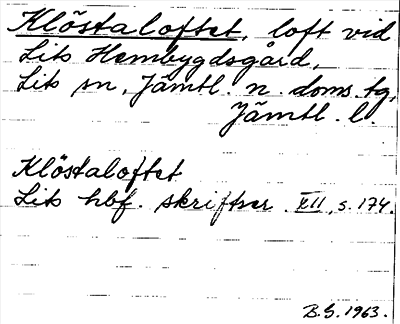 Klöstaloftet, loft vid
Lits Hembygdsgård,
Lits sn, Jämtl. n. doms. tg,
Jämtl. l.
Klöstaloftet
Lits hbf. skriftser. XII, s. 174.
B.G. 1963.